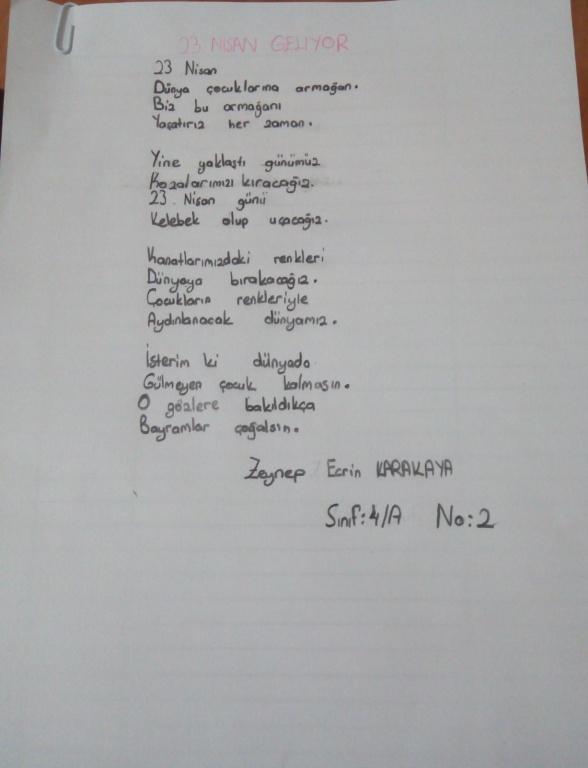 23 NİSAN GELİYOR
23 Nisan
Dünya çocuklarına armağan.
Biz bu armağanı
Yaşatırız her zaman.
Yine yaklaştı günümüz
Kozalarımızı kıracağız.
23 Nisan günü
Kelebek olup uçacağız.
Kanatlarımızdaki renkleri
Dünyaya bırakacağız.
Çocukların renkleriyle
Aydınlanacak dünyamız.
İsterim ki dünyada
Gülmeyen çocuk kalmasın.
O gözlere bakıldıkça
Bayramlar çoğalsın.
Zeynep Ecrin KARAKAYA
Sınıf:4/A No:2